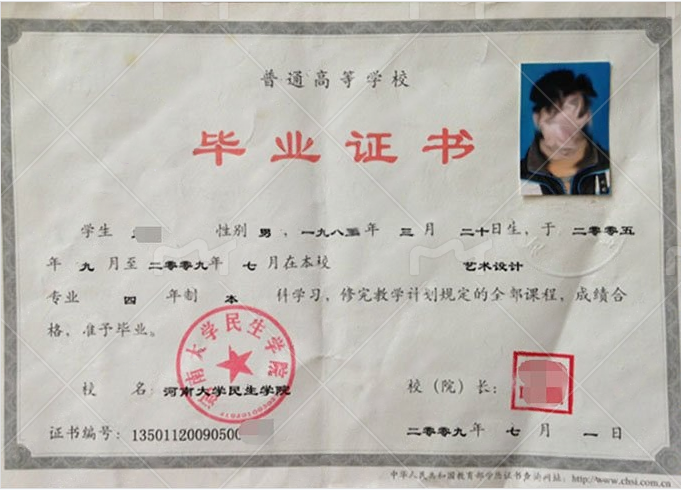 普通高等学校
毕业证书
学生 性别 男 , 一九八三年 三 月 二十日生, 于 二零零五
年 九 月至 二零零九年 七 月在本校 艺术设计
专业 四 年制 本 科学习, 修完教学计划规定的全部课程, 成绩合
格, 准予毕业。
河南大学民生学院
校 名: 河南大学民生学院 校(院)长:
证书编号: 13501120090500 二零零九年 七 月 一日
中华人民共和国教育部学历证书查询网址: http://www.chsi.com.cn